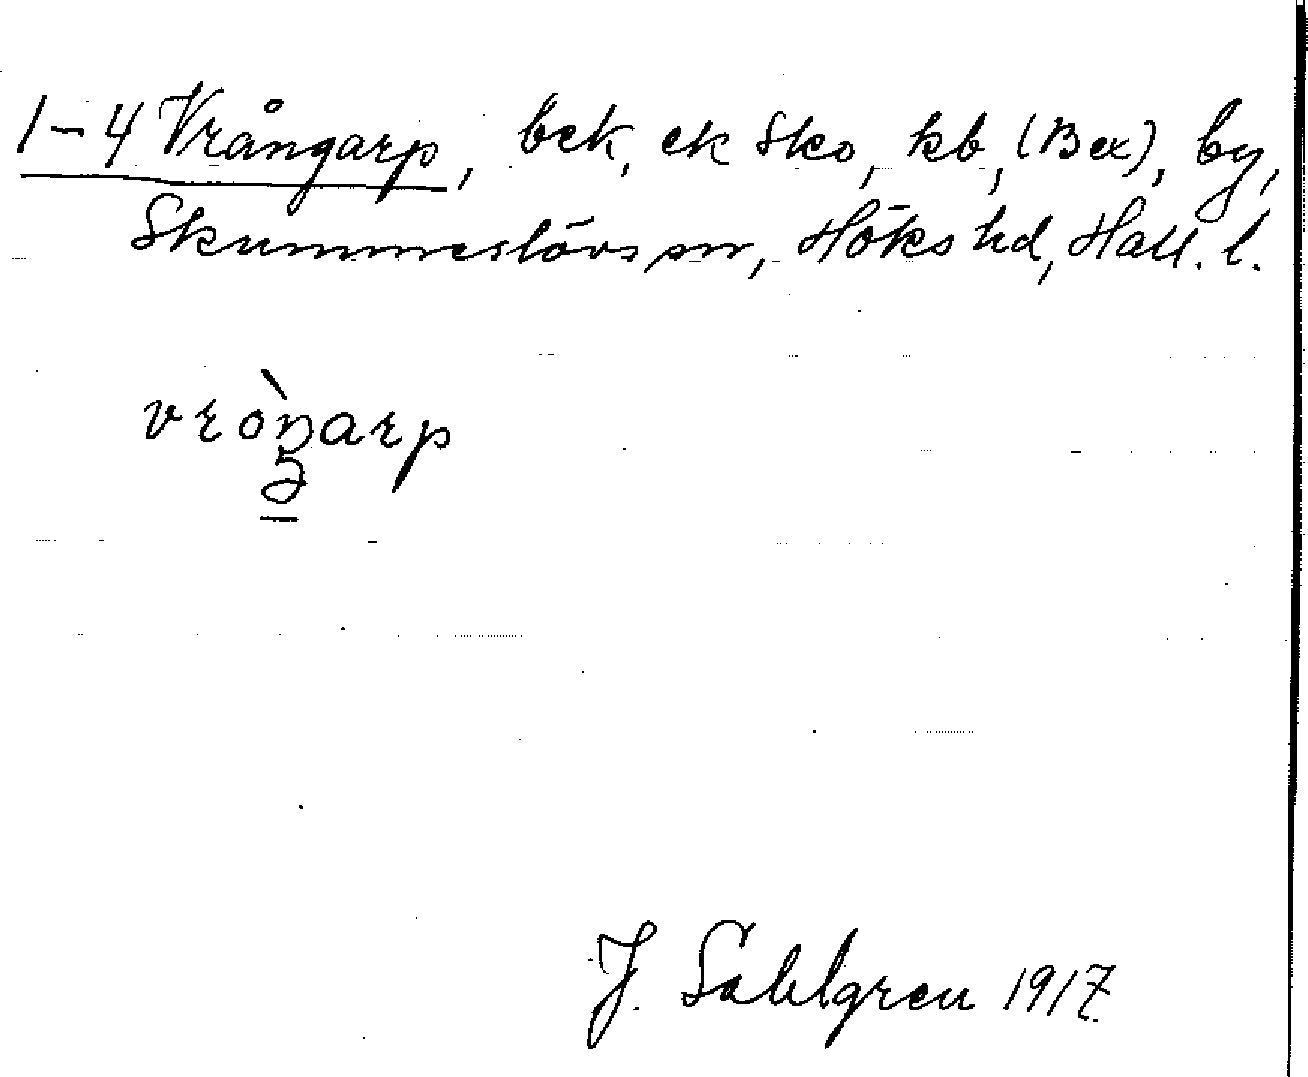 1-4 Vrångarp, bck, ek Sko, kb, (Bex), by,
Skummeslövs sn, Höks hd, Hall. l.
vròŋarp
J. Sahlgren 1917